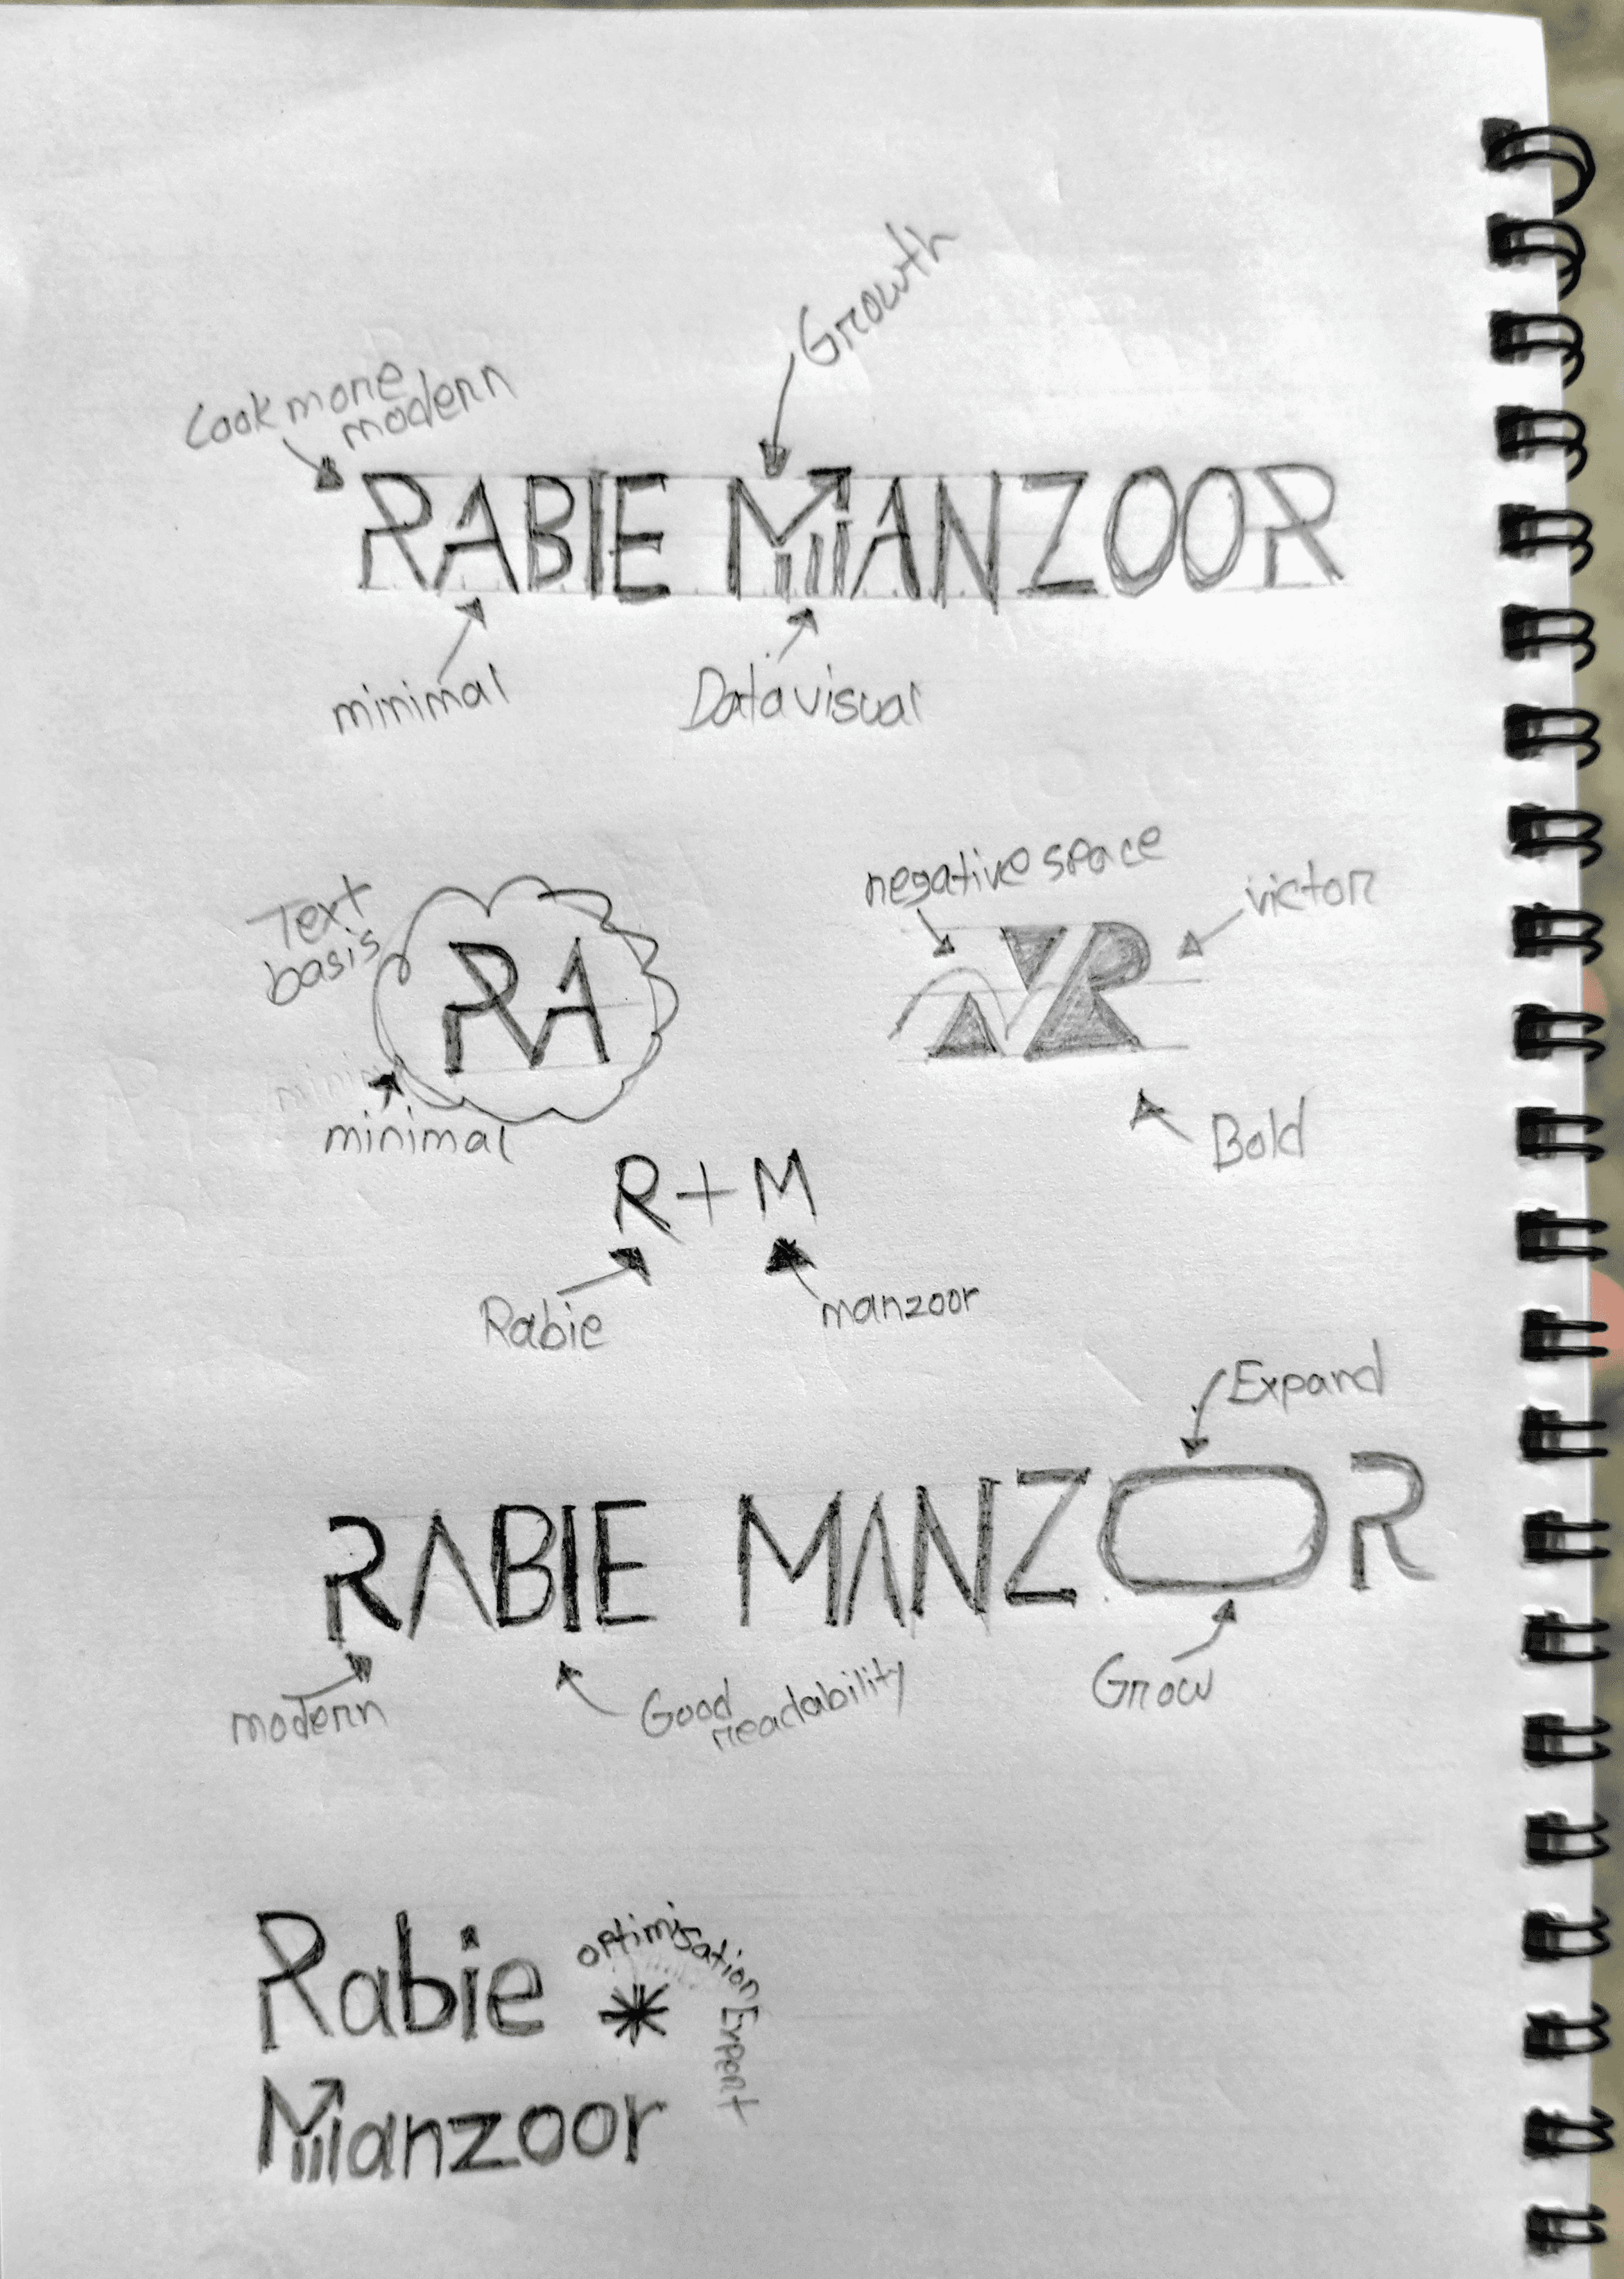 Growth
Look more
modern
RABIE MANZOOR
minimal
Data visual
negative space
Text
basis
victor
RA
R
minimal
Bold
R+M
Rabie
manzoor
Expand
RABIE MANZOR
modern
Good
readability
Grow
Rabie
optimisation Expert
Manzoor